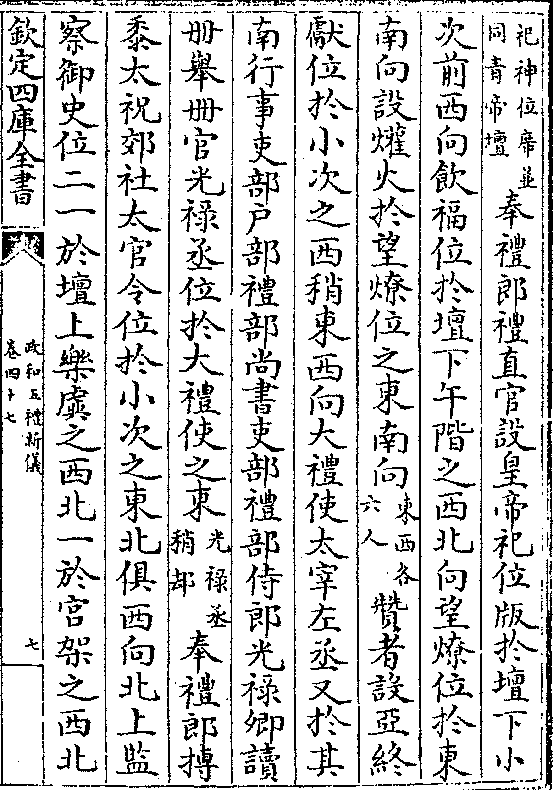 祀神位席並同青帝壇奉禮郎禮直官設皇帝祀位版扵壇下小
次前西向飲福位扵壇下午階之西北向望燎位扵東
南向設爟火扵望燎位之東南向東西各六人贊者設亞終
獻位扵小次之西稍東西向大禮使太宰左丞又扵其
南行事吏部戶部禮部尚書吏部禮部侍郎光禄卿讀
冊舉冊官光禄丞位扵大禮使之東光禄丞稍却奉禮郎摶
黍太祝郊社太官令位扵小次之東北俱西向北上監
察御史位二一於壇上樂虡之西北一於宫架之西北
欽定四庫全書
政和五禮新儀
卷四十七
七